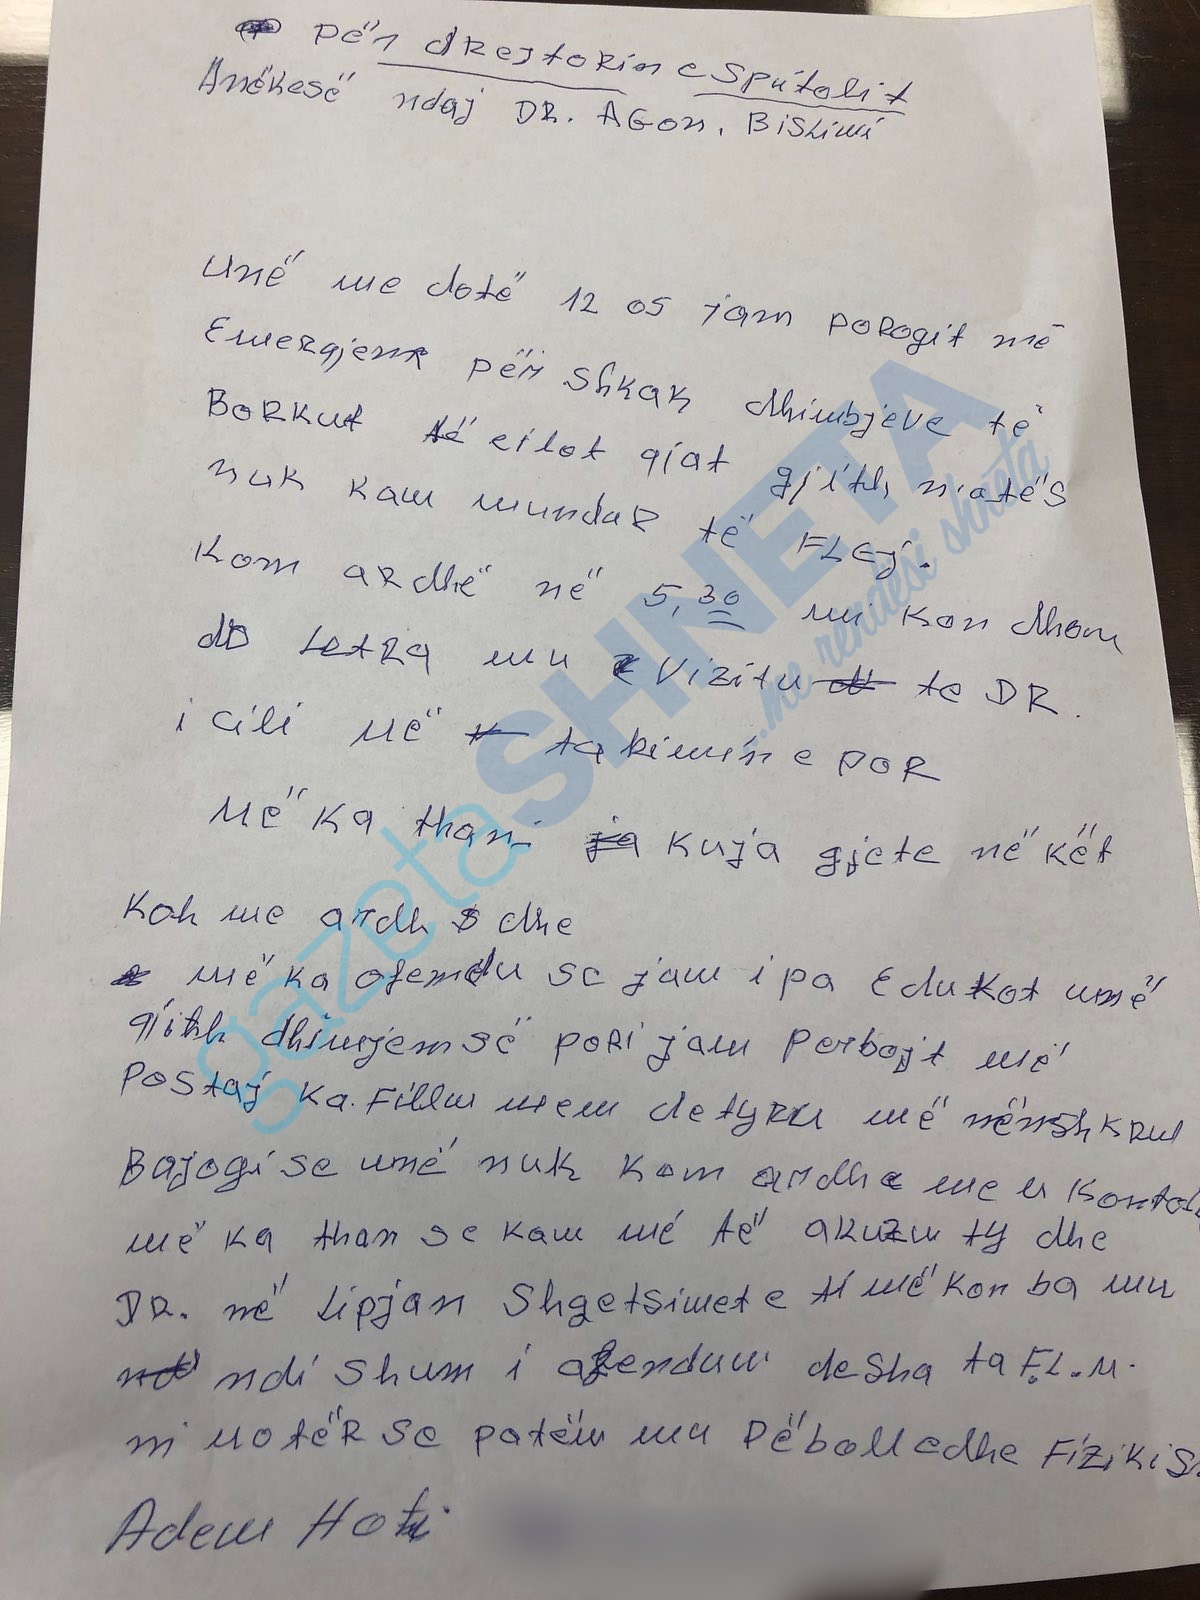 Për drejtorin e Spitolit
Ankesë ndaj DR. AGON. BisLimi
Unë me dotë 12 05 jam porogit në
Emergjenc për shkak dhimbjeve të
Borkut të cilot gjat gjith natës
nuk kam mundur të FLEj.
Kom ardhë në 5,30 mi kan dhom
do Letra mu Vizitu te DR.
i cili në takimin e por
Më ka than ku ja gjete në kët
Koh me ardh dhe
më ka ofendu se jam i pa Edukot unë
gjith dhimjem së pori jam Perbojt më
Postaj ka Fillu mem detyru më nënshkru
Bajogi se unë nuk kom ardhe me u Kontol
më ka than se kam më të akuzu ty dhe
DR. në Lipjan Shqetsimet e ti më kon ba mu
ndi shum i ofendum desha ta F.L.M.
ni motër se patëm mu Pëboll edhe Fizikis
Adem Hoti
gazetaSHNETA
...me rendësi shneta